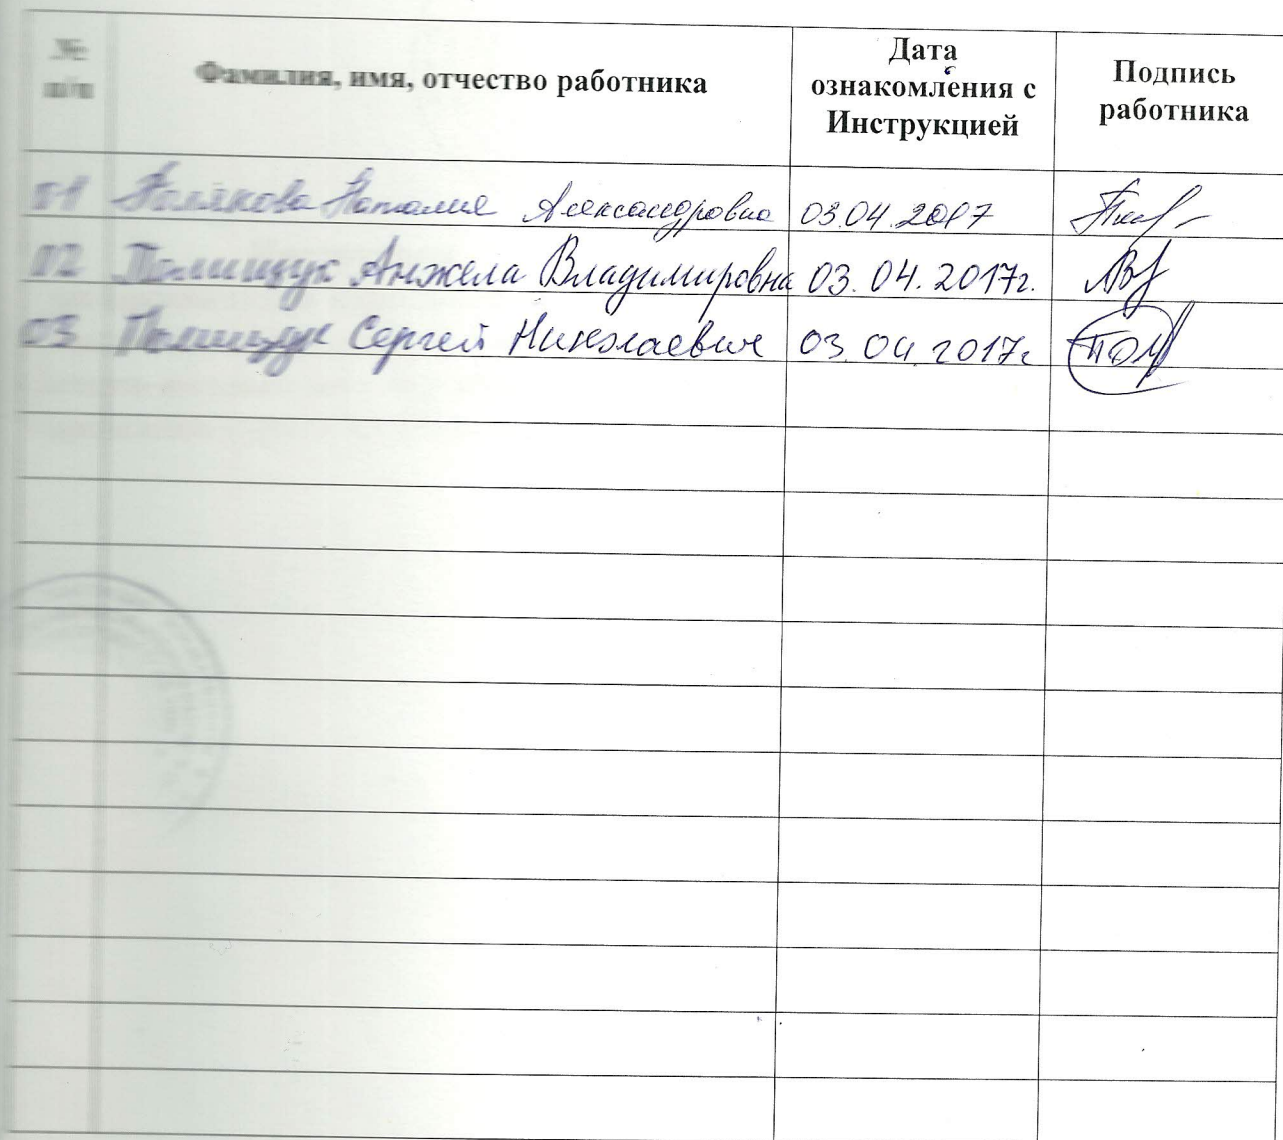 № Дата
п/п Фамилия, имя, отчество работника ознакомления с Подпись
Инструкцией работника
01 Полякова Наталия Александровна 03.04.2017
02 Полищук Анжела Владимировна 03.04.2017г.
03 Полищук Сергей Николаевич 03.04.2017г